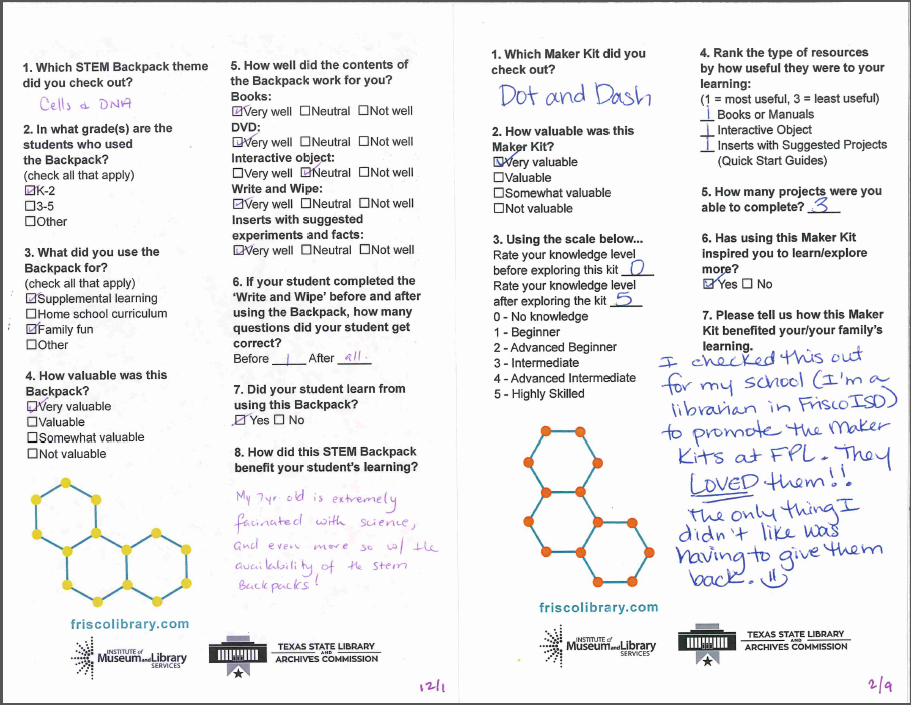 1. Which STEM Backpack theme
did you check out?
Cells & DNA
2. In what grade(s) are the
students who used
the Backpack?
(check all that apply)
☑K-2
☐3-5
☐Other
3. What did you use the
Backpack for?
(check all that apply)
☑Supplemental learning
☐Home school curriculum
☑Family fun
☐Other
4. How valuable was this
Backpack?
☑Very valuable
☐Valuable
☐Somewhat valuable
☐Not valuable
5. How well did the contents of
the Backpack work for you?
Books:
☑Very well ☐Neutral ☐Not well
DVD:
☑Very well ☐Neutral ☐Not well
Interactive object:
☐Very well ☑Neutral ☐Not well
Write and Wipe:
☑Very well ☐Neutral ☐Not well
Inserts with suggested
experiments and facts:
☑Very well ☐Neutral ☐Not well
6. If your student completed the
'Write and Wipe' before and after
using the Backpack, how many
questions did your student get
correct?
Before 1 After all.
7. Did your student learn from
using this Backpack?
☑ Yes ☐ No
8. How did this STEM Backpack
benefit your student's learning?
My 7yr old is extremely
facinated with science,
and even more so w/ the
availability of the stem
Backpacks!
friscolibrary.com
INSTITUTE of
Museum and Library
SERVICES
TEXAS STATE LIBRARY
AND
ARCHIVES COMMISSION
12/1
1. Which Maker Kit did you
check out?
Dot and Dash
2. How valuable was this
Maker Kit?
☑Very valuable
☐Valuable
☐Somewhat valuable
☐Not valuable
3. Using the scale below...
Rate your knowledge level
before exploring this kit 0
Rate your knowledge level
after exploring the kit 5
0 - No knowledge
1 - Beginner
2 - Advanced Beginner
3 - Intermediate
4 - Advanced Intermediate
5 - Highly Skilled
4. Rank the type of resources
by how useful they were to your
learning:
(1 = most useful, 3 = least useful)
1 Books or Manuals
1 Interactive Object
1 Inserts with Suggested Projects
(Quick Start Guides)
5. How many projects were you
able to complete? 3
6. Has using this Maker Kit
inspired you to learn/explore
more?
☑ Yes ☐ No
7. Please tell us how this Maker
Kit benefited your/your family's
learning.
I checked this out
for my school (I'm a
librarian in Frisco ISD)
to promote the Maker
Kits at FPL. They
LOVED them!!
The only thing I
didn't like was
having to give them
back.
friscolibrary.com
INSTITUTE of
Museum and Library
SERVICES
TEXAS STATE LIBRARY
AND
ARCHIVES COMMISSION
2/9